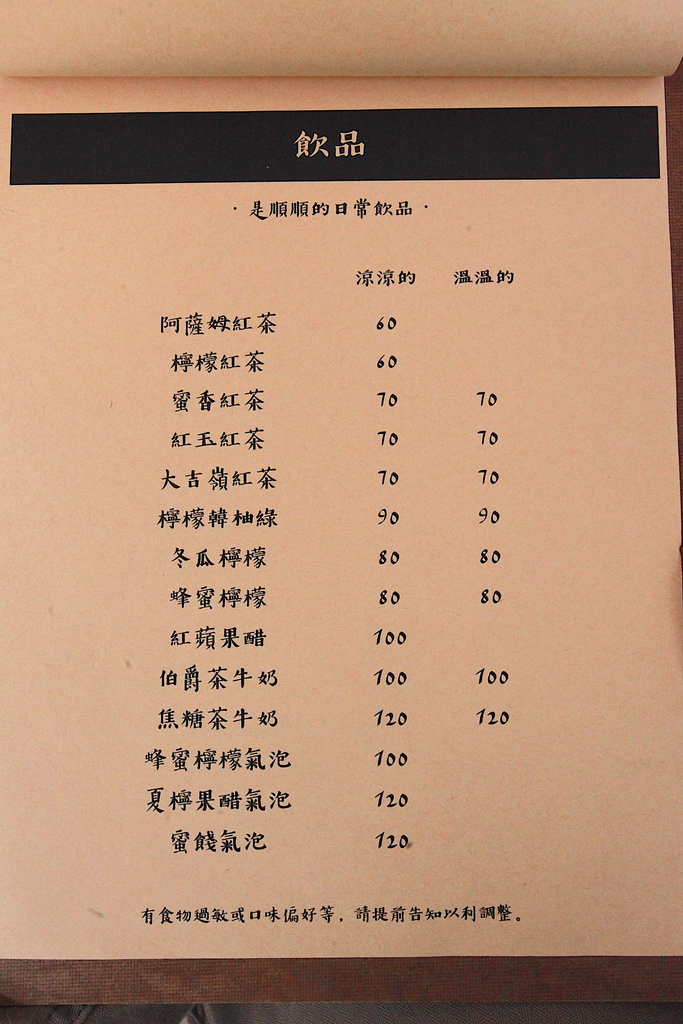 飲品
·是順順的日常飲品·
涼涼的 溫溫的
阿薩姆紅茶 60
檸檬紅茶 60
蜜香紅茶 70 70
紅玉紅茶 70 70
大吉嶺紅茶 70 70
檸檬韓柚綠 90 90
冬瓜檸檬 80 80
蜂蜜檸檬 80 80
紅蘋果醋 100
伯爵茶牛奶 100 100
焦糖茶牛奶 120 120
蜂蜜檸檬氣泡 100
夏檸果醋氣泡 120
蜜餞氣泡 120
有食物過敏或口味偏好等，請提前告知以利調整。